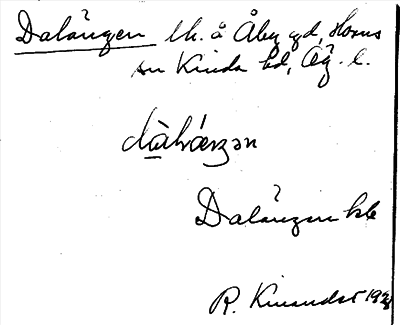 Dalängen lh. å Åby gd, Horns
sn Kinda hd, Ög. l.
Dalängen hle
R. Kinander 192